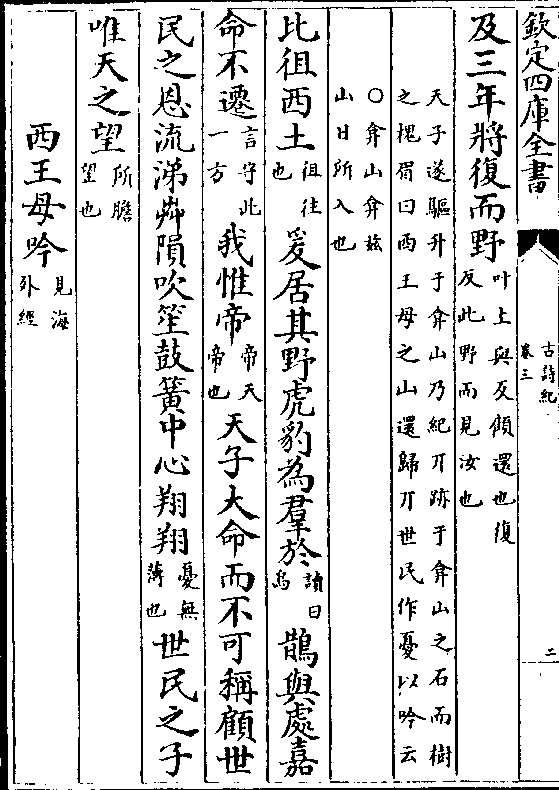 欽定四庫全書
古詩紀
卷三
二
及三年將復而野叶上與反傾還也復
反此野而見汝也
天子遂驅升于弇山乃紀丌跡于弇山之石而樹
之槐眉曰西王母之山還歸丌世民作憂以吟云
○弇山弇玆
山日所入也
比徂西土徂往
也爰居其野虎豹為羣於讀曰
烏鵲與處嘉
命不遷言守此
一方我惟帝帝天
帝也天子大命而不可稱顧世
民之恩流涕芔隕吹笙鼓簧中心翔翔憂無
薄也世民之子
唯天之望所瞻
望也
西王母吟見海
外經